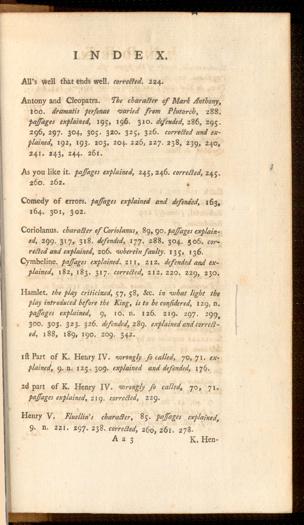 INDEX.
All's well that ends well. corrected. 224.
Antony and Cleopatra. The character of Mark Anthony,
100. dramatis personæ varied from Plutarch, 288.
paſſages explained, 195, 196. 310. defended, 286, 295.
296, 297. 304, 305. 320. 325, 326. corrected and ex-
plained, 192, 193. 203, 204. 226, 227. 238, 239, 240,
241. 243, 244. 261.
As you like it. paſſages explained, 245, 246. corrected, 245.
260. 262.
Comedy of errors. paſſages explained and defended, 163,
164. 301, 302.
Coriolanus. character of Coriolanus, 89, 90. paſſages explain-
ed, 299. 317, 318. defended, 177. 288. 304. 306. cor-
rected and explained, 206. wherein faulty. 135, 136.
Cymbeline. paſſages explained. 211, 212. defended and ex-
plained, 182, 183. 317. corrected, 212. 220, 229, 230.
Hamlet. the play criticized, 57, 58, &c. in what light the
play introduced before the King, is to be conſidered, 129, n.
paſſages explained, 9, 10. n. 126. 219. 297. 299,
300. 305. 323. 326. defended, 289. explained and correct-
ed, 188, 189, 190. 209. 342.
1ſt Part of K. Henry IV. wrongly ſo called, 70, 71. ex-
plained, 9. n. 125. 309. explained and defended, 176.
2d part of K. Henry IV. wrongly ſo called, 70, 71.
paſſages explained, 219. corrected, 229.
Henry V. Fluellin's character, 85. paſſages explained,
9. n. 221. 297. 238. corrected, 260, 261. 278.
A a 3 K. Hen-